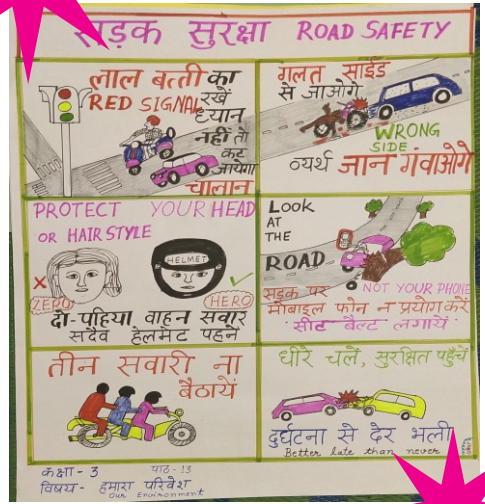 सड़क सुरक्षा ROAD SAFETY
लाल बत्ती का
RED SIGNAL रखें
ध्यान
नहीं तो
कट
जायेगा
चालान
गलत साईड
से जाओगे
WRONG
SIDE
व्यर्थ जान गंवाओगे
PROTECT YOUR HEAD
OR HAIR STYLE
HELMET
ZERO
HERO
दो-पहिया वाहन सवार
सदैव हेलमेट पहने
LOOK
AT
THE
ROAD
NOT YOUR PHONE
सड़क पर
मोबाइल फोन न प्रयोग करें
सीट बैल्ट लगायें
तीन सवारी ना
बैठायें
धीरे चलें, सुरक्षित पहुँचें
दुर्घटना से देर भली
Better late than never
कक्षा - 3 पाठ - 13
विषय - हमारा परिवेश
Our Environment